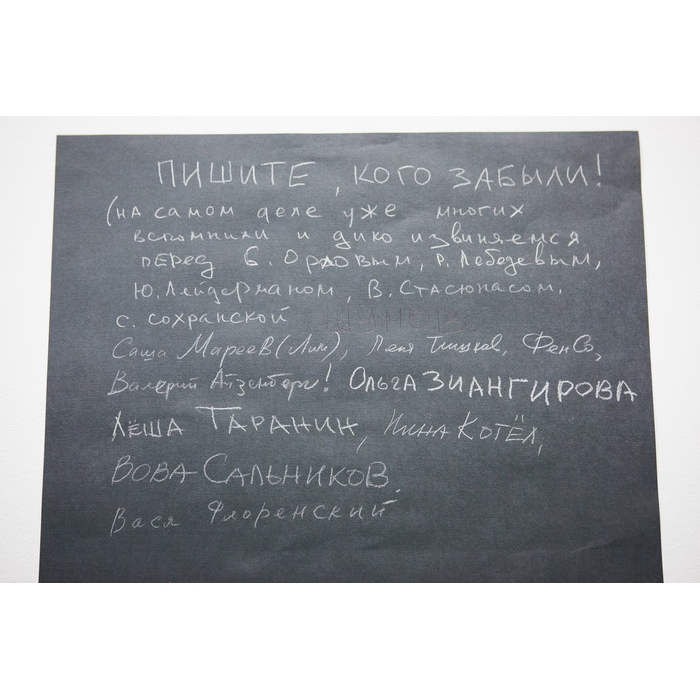 ПИШИТЕ, КОГО ЗАБЫЛИ!
(на самом деле уже многих
вспомнили и дико извиняемся
перед Б. Орловым, Р. Лебедевым,
Ю. Лейдерманом, В. Стасюнасом,
С. Сохранской
Саша Мареев (Лим), Лёня Тишков, ФенСо,
Валерий Айзенберг! Ольга ЗИАНГИРОВА
Лёша ТАРАНИН, Нина КОТЁЛ,
ВОВА САЛЬНИКОВ,
Вася Флоренский